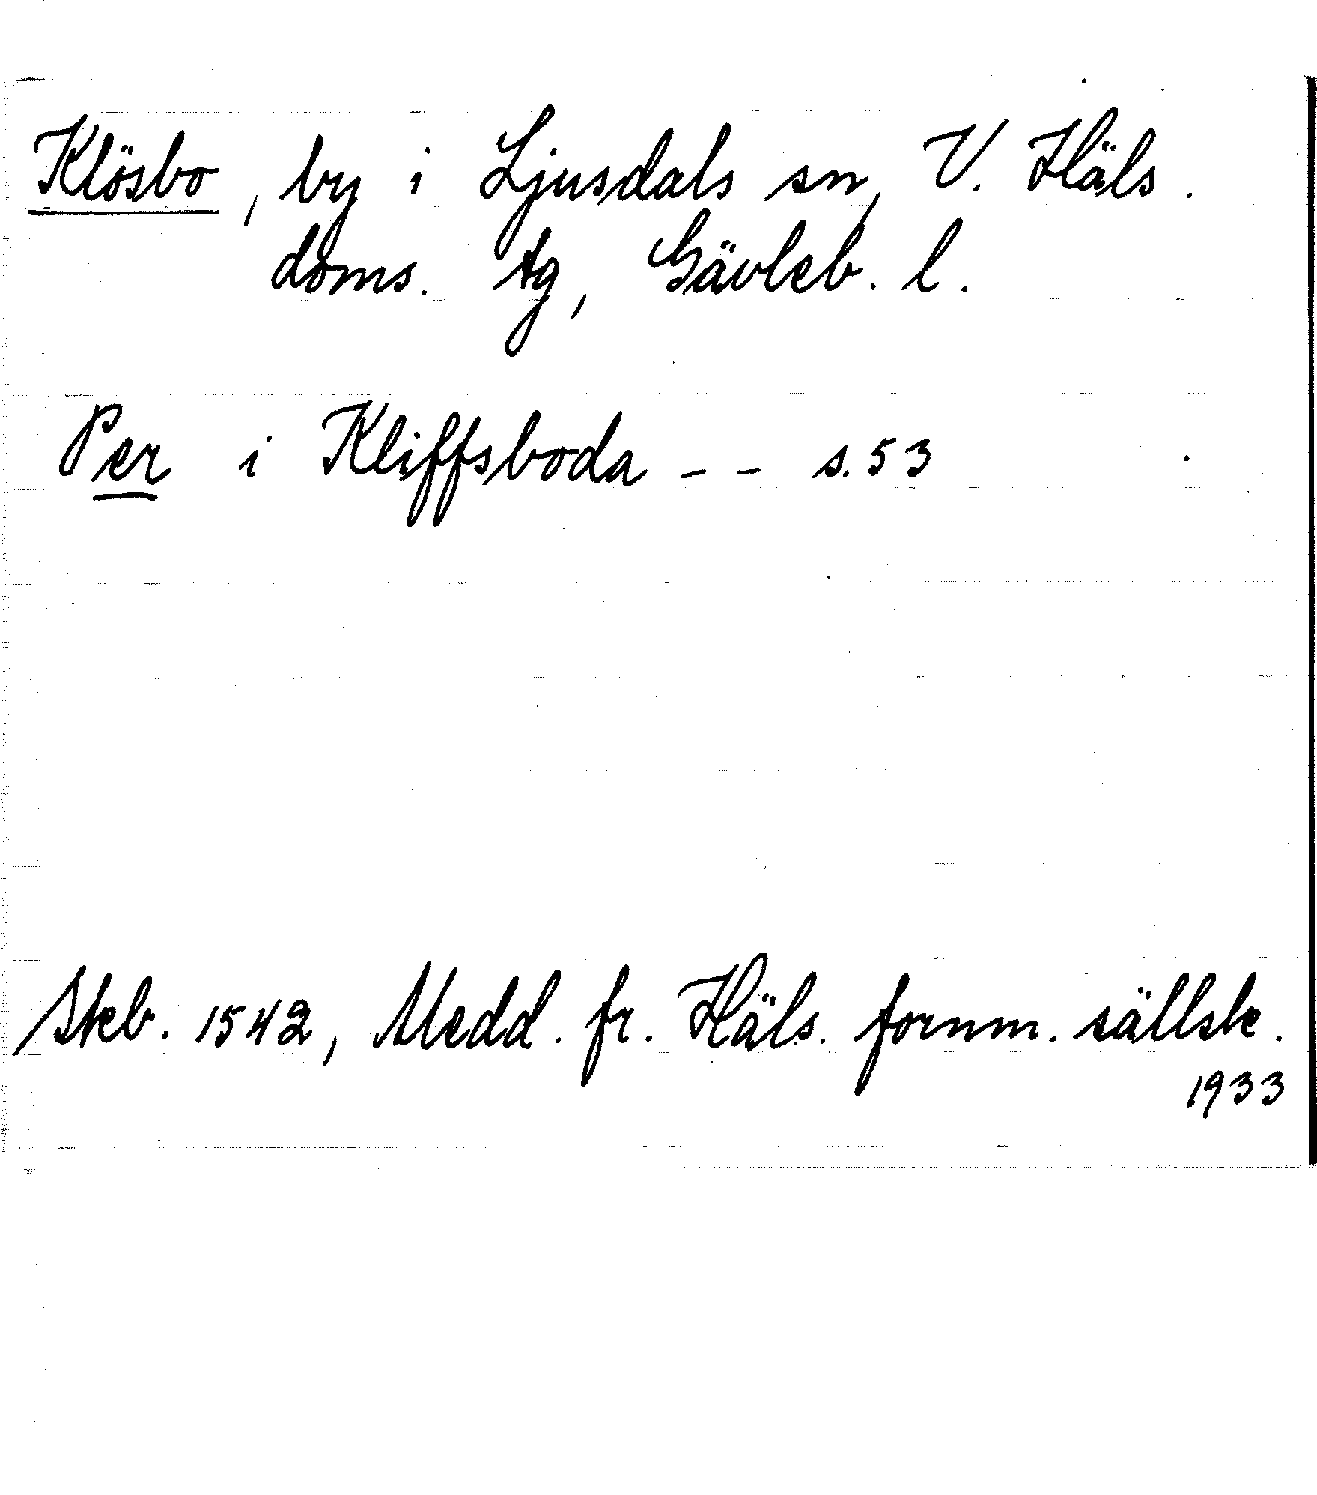 Klösbo, by i Ljusdals sn, V. Häls.
doms. tg, Gävleb. l.
Per i Kliffsboda -- s. 53
Skeb. 1542, Medd. fr. Häls. fornm. sällsk.
1933